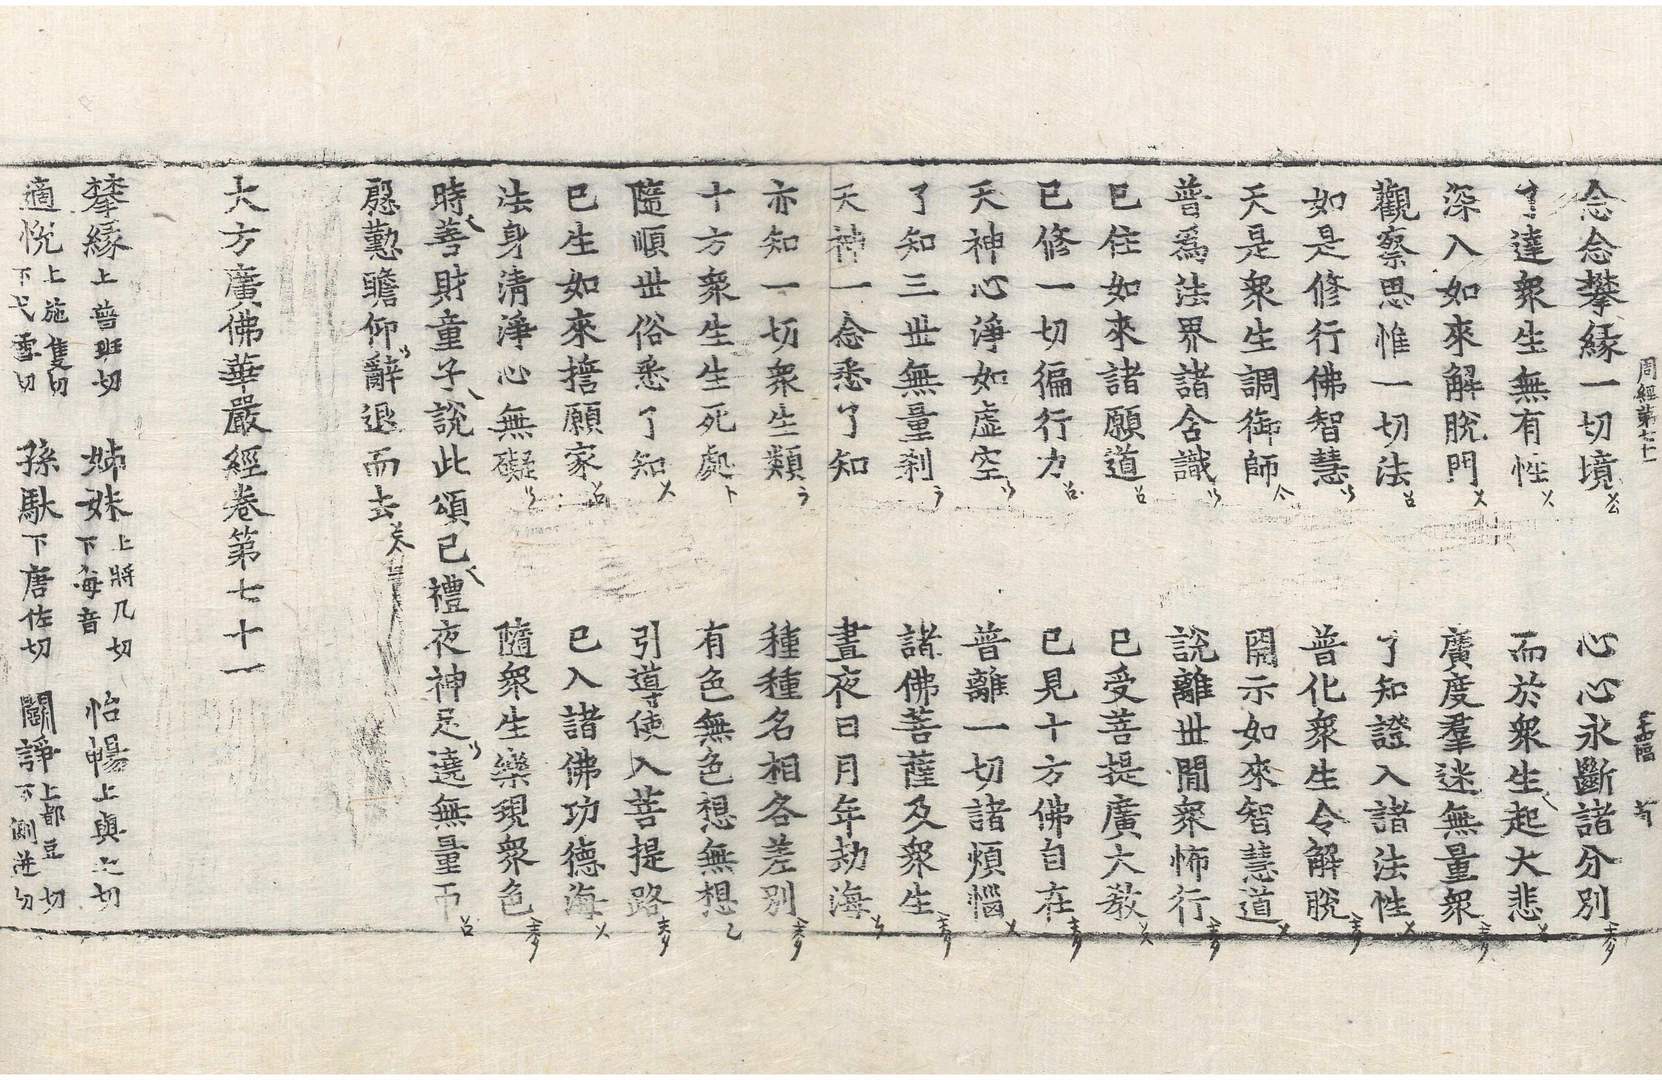 周經第七十一
念念攀緣一切境 心心永斷諸分別
了達衆生無有性 而於衆生起大悲
深入如來解脫門 廣度羣迷無量衆
觀察思惟一切法 了知證入諸法性
如是修行佛智慧 普化衆生令解脫
天是衆生調御師 開示如來智慧道
普爲法界諸含識 說離世間衆怖行
已住如來諸願道 已受菩提廣大教
已修一切徧行力 已見十方佛自在
天神心淨如虛空 普離一切諸煩惱
了知三世無量剎 諸佛菩薩及衆生
天神一念悉了知 晝夜日月年劫海
亦知一切衆生類 種種名相各差別
十方衆生生死處 有色無色想無想
隨順世俗悉了知 引導使入菩提路
已生如來誓願家 已入諸佛功德海
法身清淨心無礙 隨衆生樂現衆色
時善財童子說此頌已禮夜神足遶無量帀
慇懃瞻仰辭退而去
大方廣佛華嚴經卷第七十一
攀緣上普班切 姊妹上將几切下每音 怡暢上與之切
適悅上施隻切下弋雪切 孫馱下唐佐切 鬬諍上都豆切下側迸切